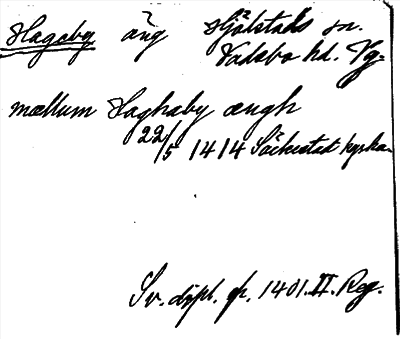 Hagaby äng Hjälstads sn.
Vadsbo hd. Vg.
mællum Haghaby ængh
22/5 1414 Säckestad kyrka
Sv. dipl. fr. 1401. II. Reg.